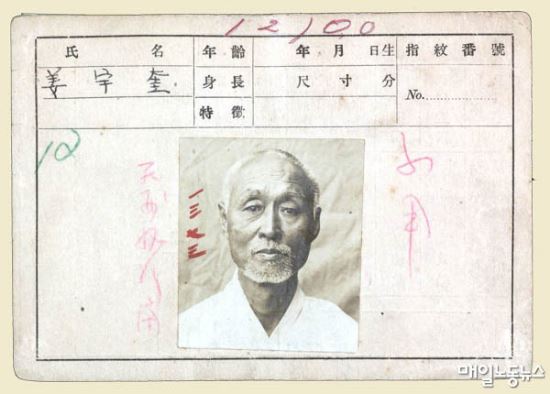 12100
氏名 年齡 年月日生 指紋番號
姜宇奎 身長 尺寸分 No.
特徵
12
不用
매일노동뉴스